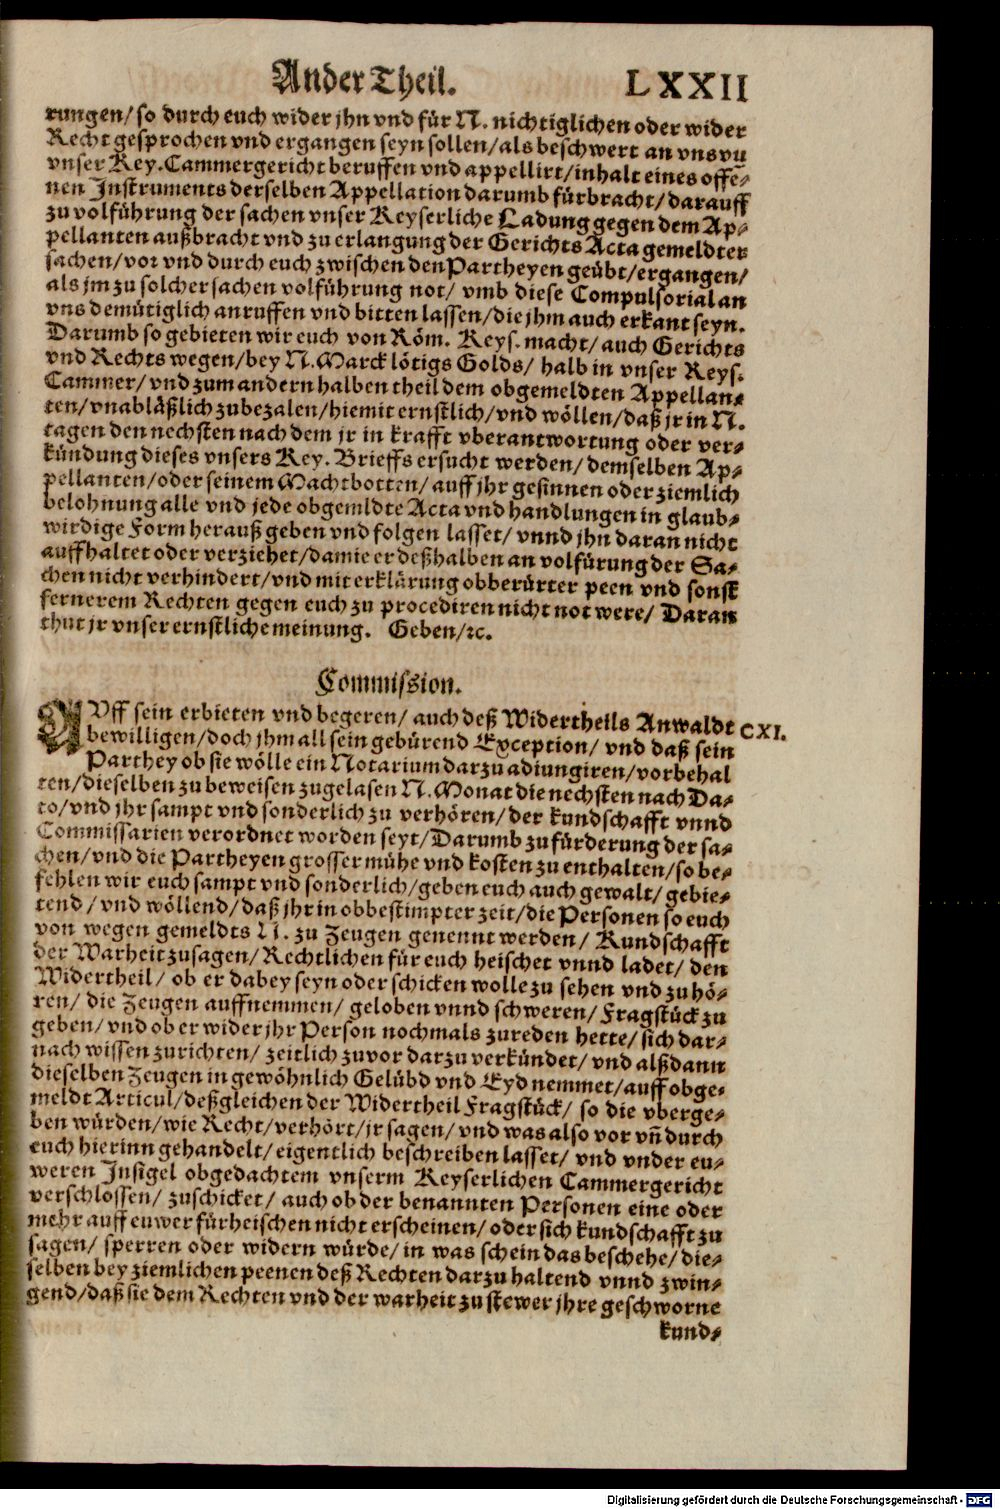 Ander Theil. LXXII
rungen/ so durch euch wider jhn vnd für N. nichtiglichen oder wider
Recht gesprochen vnd ergangen seyn sollen/ als beschwert an vns vñ
vnser Key. Cammergericht beruffen vnd appellirt/ inhalt eines offe⸗
nen Instruments derselben Appellation darumb fürbracht/ darauff
zu volführung der sachen vnser Keyserliche Ladung gegen dem Ap⸗
pellanten außbracht vnd zu erlangung der Gerichts Acta gemeldter
sachen/ vor vnd durch euch zwischen den Partheyen geübt/ ergangen/
als jm zu solcher sachen volführung not/ vmb diese Compulsorial an
vns demütiglich anruffen vnd bitten lassen/ die jhm auch erkant seyn.
Darumb so gebieten wir euch von Röm. Keys. macht/ auch Gerichts
vnd Rechts wegen/ bey N. Marck lötigs Golds/ halb in vnser Keys.
Cammer/ vnd zum andern halben theil dem obgemeldten Appellan⸗
ten/ vnabläßlich zubezalen/ hiemit ernstlich/ vnd wöllen/ daß jr in N.
tagen den nechsten nach dem jr in krafft vberantwortung oder ver⸗
kündung dieses vnsers Key. Brieffs ersucht werden/ demselben Ap⸗
pellanten/ oder seinem Machtbotten/ auff jhr gesinnen oder ziemlich
belohnung alle vnd jede obgemldte Acta vnd handlungen in glaub⸗
wirdige Form herauß geben vnd folgen lasset/ vnnd jhn daran nicht
auffhaltet oder verziehet/ damit er deßhalben an volfürung der Sa⸗
chen nicht verhindert/ vnd mit erklärung obberürter peen vnd sonst
fernerem Rechten gegen euch zu procediren nicht not were/ Daran
thut jr vnser ernstliche meinung. Geben/ ꝛc.
Commission.
AVff sein erbieten vnd begeren/ auch deß Widertheils Anwaldt CXI.
bewilligen/ doch jhm all sein gebürend Exception/ vnd daß sein
Parthey ob sie wölle ein Notarium darzu adiungiren/ vorbehal
ten/ dieselben zu beweisen zugelasen N. Monat die nechsten nach Da⸗
to/ vnd jhr sampt vnd sonderlich zu verhören/ der kundschafft vnnd
Commissarien verordnet worden seyt/ Darumb zu fürderung der sa⸗
chen/ vnd die Partheyen grosser mühe vnd kosten zu enthalten/ so be⸗
fehlen wir euch sampt vnd sonderlich/ geben euch auch gewalt/ gebie⸗
tend/ vnd wöllend/ daß jhr in obbestimpter zeit/ die Personen so euch
von wegen gemeldts N. zu Zeugen genennt werden/ Kundschafft
der Warheit zusagen/ Rechtlichen für euch heischet vnnd ladet/ den
Widertheil/ ob er dabey seyn oder schicken wolle zu sehen vnd zu hö⸗
ren/ die Zeugen auffnemmen/ geloben vnnd schweren/ Fragstück zu
geben/ vnd ob er wider jhr Person nochmals zureden hette/ sich dar⸗
nach wissen zurichten/ zeitlich zuvor darzu verkündet/ vnd alßdann
dieselben Zeugen in gewöhnlich Gelübd vnd Eyd nemmet/ auff obge⸗
meldt Articul/ deßgleichen der Widertheil Fragstück/ so die vberge⸗
ben würden/ wie Recht/ verhört/ jr sagen/ vnd was also vor vñ durch
euch hierinn gehandelt/ eigentlich beschreiben lasset/ vnd vnder eu⸗
weren Insigel obgedachtem vnserm Keyserlichen Cammergericht
verschlossen/ zuschicket/ auch ob der benannten Personen eine oder
mehr auff euwer fürheischen nicht erscheinen/ oder sich kundschafft zu
sagen/ sperren oder widern würde/ in was schein das beschehe/ die⸗
selben bey ziemlichen peenen deß Rechten darzu haltend vnnd zwin⸗
gend/ daß sie dem Rechten vnd der warheit zu stewer jhre geschworne
kund⸗
Digitalisierung gefördert durch die Deutsche Forschungsgemeinschaft - DFG